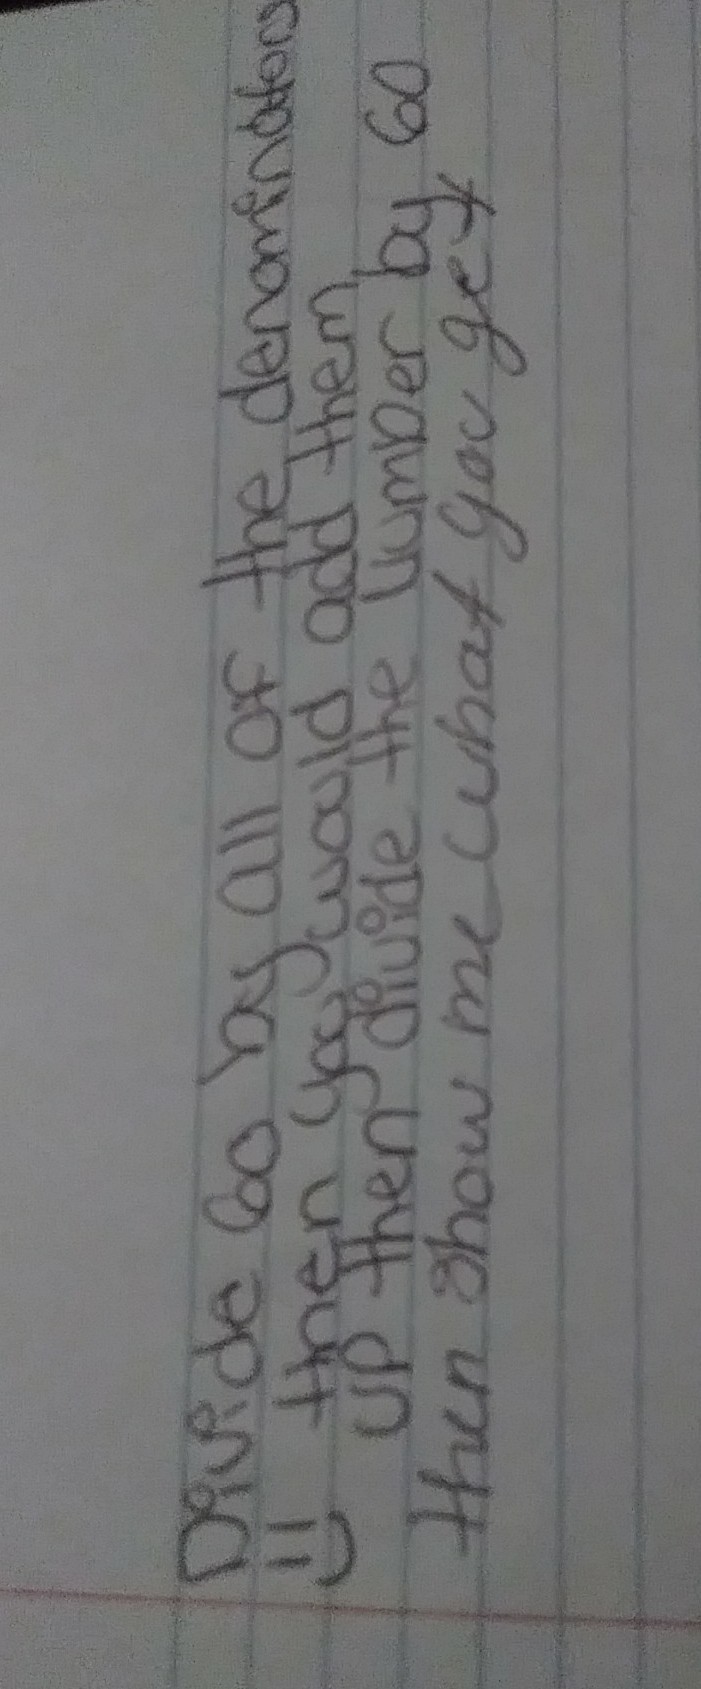 Divide 60 by all of the denominators
then you would add them
up then divide the number by 60
then show me what you get